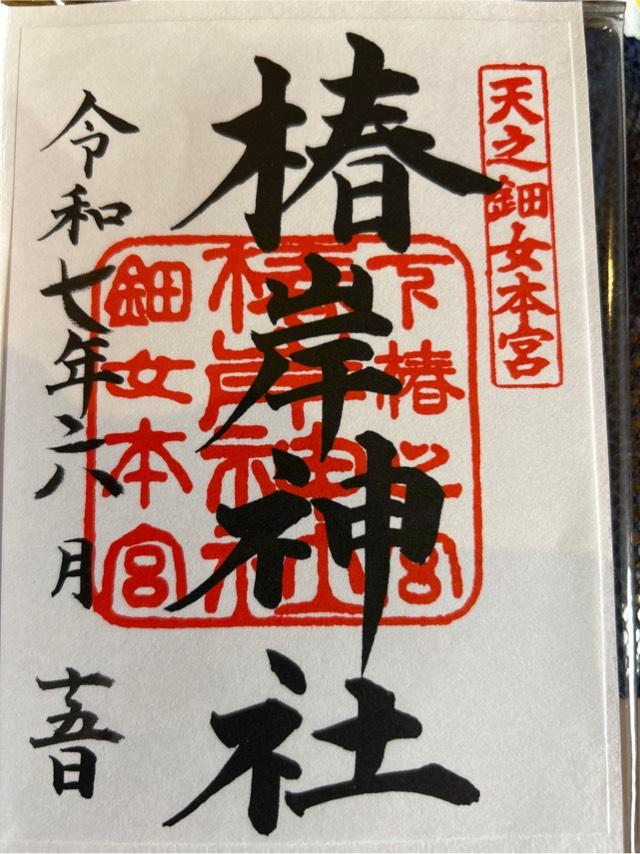 天之鈿女本宮
椿岸神社
下椿之宮
椿岸神社
鈿女本宮
令和七年六月十五日